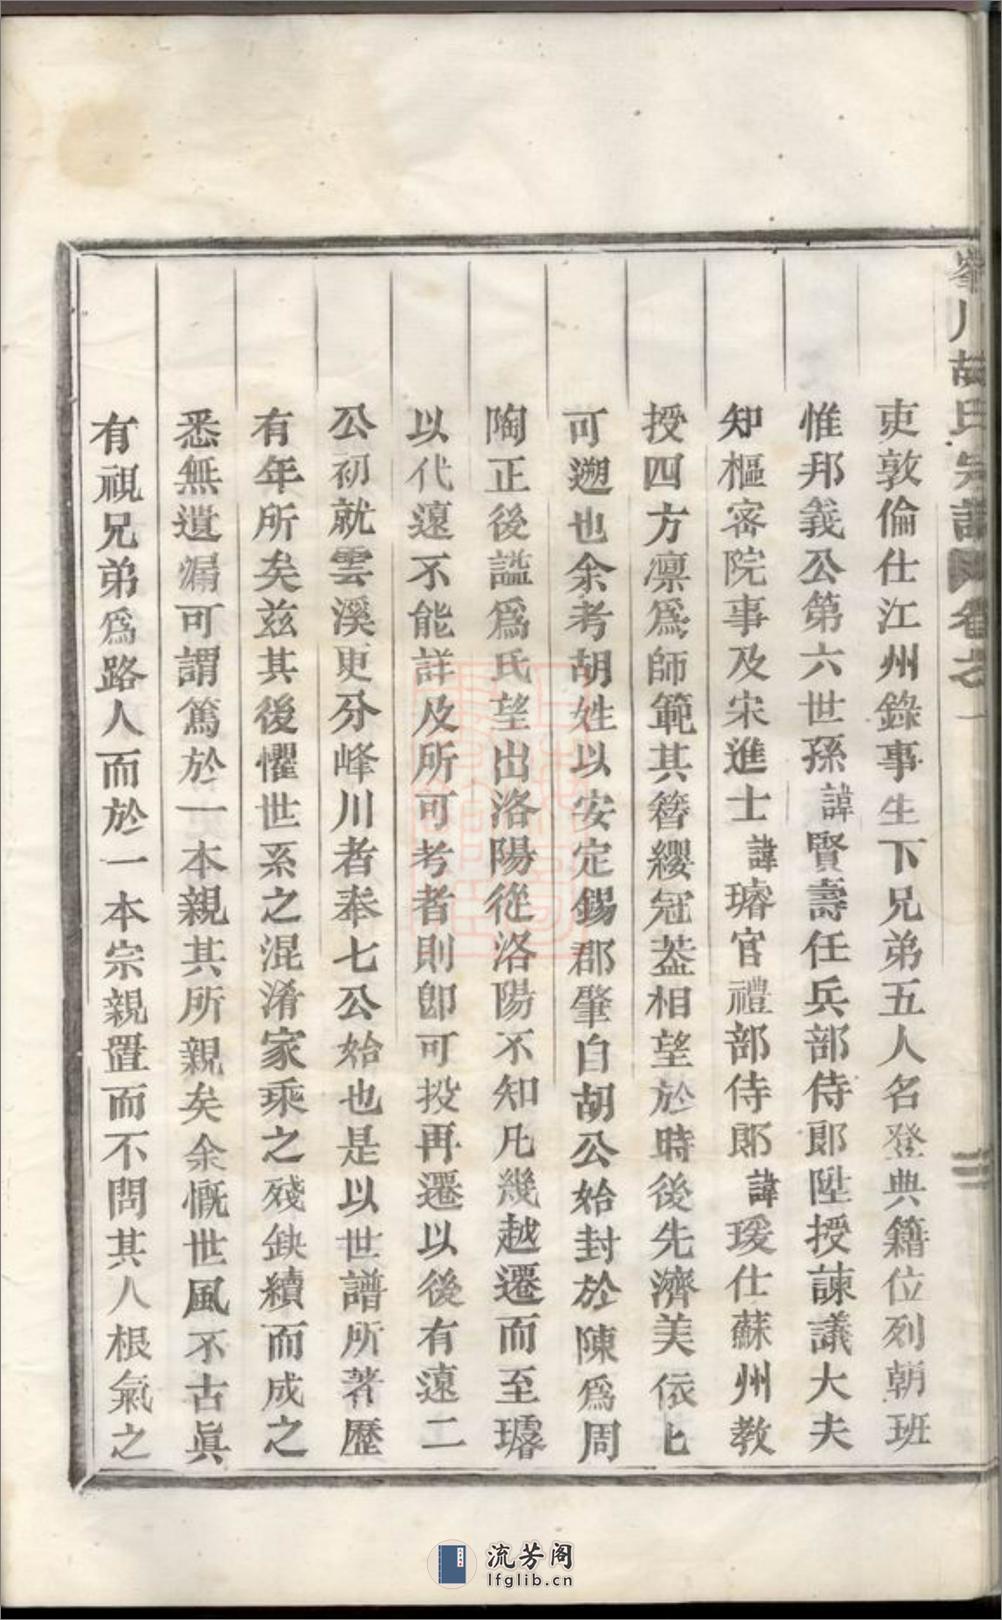 峯川胡氏宗譜 卷之一
吏敦倫仕江州錄事生下兄弟五人名登典籍位列朝班
惟邦義公第六世孫諱賢壽任兵部侍郞陞授諫議大夫
知樞密院事及宋進士諱璿官禮部侍郞諱瑗仕蘇州敎
授四方凛爲師範其簪纓冠葢相望於時後先濟美依匕
可遡也余考胡姓以安定錫郡肇自胡公始封於陳爲周
陶正後謚爲氏望出洛陽從洛陽不知凡幾越遷而至璿
以代遠不能詳及所可考者則卽可投再遷以後有遠二
公初就雲溪更分峰川者奉七公始也是以世譜所著歷
有年所矣兹其後懼世系之混淆家乘之殘缺續而成之
悉無遺漏可謂篤於一本親其所親矣余慨世風不古眞
有視兄弟爲路人而於一本宗親置而不問其人根氣之
流芳阁
lfglib.cn